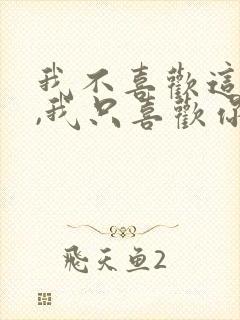 我不喜歡這
,我只喜歡你
飛天鱼2